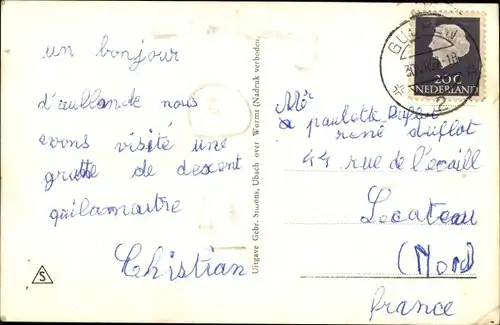 un bonjour
d'eullande nous
avons visité une
grotte de descent
quilamaitre
Christian
Uitgave Gebr. Simons, Ubach over Worms (Nadruk verboden)
20c
NEDERLAND
2
Mr
paulette Duflot
rené duflot
44 rue de l'ecaill
Lecateau
(Nord)
france
S